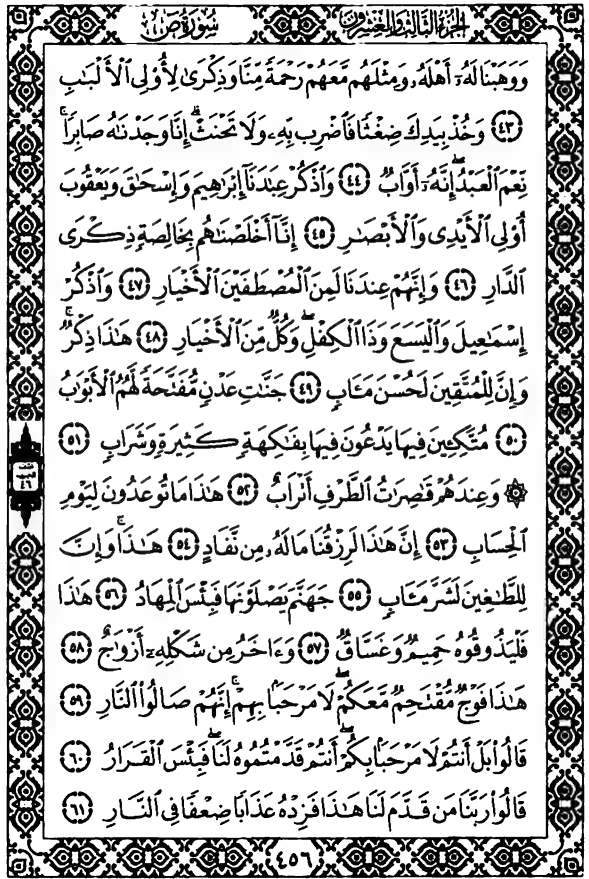 سُورَةُ صٓ
الجُزْءُ الثَّالِثُ وَالعِشْرُونَ
وَوَهَبْنَا لَهُۥٓ أَهْلَهُۥ وَمِثْلَهُم مَّعَهُمْ رَحْمَةً مِّنَّا وَذِكْرَىٰ لِأُوْلِى ٱلْأَلْبَٰبِ
﴿٤٣﴾ وَخُذْ بِيَدِكَ ضِغْثًا فَٱضْرِب بِّهِۦ وَلَا تَحْنَثْ ۗ إِنَّا وَجَدْنَٰهُ صَابِرًا ۚ
نِّعْمَ ٱلْعَبْدُ ۖ إِنَّهُۥٓ أَوَّابٌ ﴿٤٤﴾ وَٱذْكُرْ عِبَٰدَنَآ إِبْرَٰهِيمَ وَإِسْحَٰقَ وَيَعْقُوبَ
أُوْلِى ٱلْأَيْدِى وَٱلْأَبْصَٰرِ ﴿٤٥﴾ إِنَّآ أَخْلَصْنَٰهُم بِخَالِصَةٍ ذِكْرَى
ٱلدَّارِ ﴿٤٦﴾ وَإِنَّهُمْ عِندَنَا لَمِنَ ٱلْمُصْطَفَيْنَ ٱلْأَخْيَارِ ﴿٤٧﴾ وَٱذْكُرْ
إِسْمَٰعِيلَ وَٱلْيَسَعَ وَذَا ٱلْكِفْلِ ۖ وَكُلٌّ مِّنَ ٱلْأَخْيَارِ ﴿٤٨﴾ هَٰذَا ذِكْرٌ ۚ
وَإِنَّ لِلْمُتَّقِينَ لَحُسْنَ مَـَٔابٍ ﴿٤٩﴾ جَنَّٰتِ عَدْنٍ مُّفَتَّحَةً لَّهُمُ ٱلْأَبْوَٰبُ
﴿٥٠﴾ مُتَّكِـِٔينَ فِيهَا يَدْعُونَ فِيهَا بِفَٰكِهَةٍ كَثِيرَةٍ وَشَرَابٍ ﴿٥١﴾
۞ وَعِندَهُمْ قَٰصِرَٰتُ ٱلطَّرْفِ أَتْرَابٌ ﴿٥٢﴾ هَٰذَا مَا تُوعَدُونَ لِيَوْمِ
ٱلْحِسَابِ ﴿٥٣﴾ إِنَّ هَٰذَا لَرِزْقُنَا مَا لَهُۥ مِن نَّفَادٍ ﴿٥٤﴾ هَٰذَا ۚ وَإِنَّ
لِلطَّٰغِينَ لَشَرَّ مَـَٔابٍ ﴿٥٥﴾ جَهَنَّمَ يَصْلَوْنَهَا فَبِئْسَ ٱلْمِهَادُ ﴿٥٦﴾ هَٰذَا
فَلْيَذُوقُوهُ حَمِيمٌ وَغَسَّاقٌ ﴿٥٧﴾ وَءَاخَرُ مِن شَكْلِهِۦٓ أَزْوَٰجٌ ﴿٥٨﴾
هَٰذَا فَوْجٌ مُّقْتَحِمٌ مَّعَكُمْ ۖ لَا مَرْحَبًۢا بِهِمْ ۚ إِنَّهُمْ صَالُوا۟ ٱلنَّارِ ﴿٥٩﴾
قَالُوا۟ بَلْ أَنتُمْ لَا مَرْحَبًۢا بِكُمْ ۖ أَنتُمْ قَدَّمْتُمُوهُ لَنَا ۖ فَبِئْسَ ٱلْقَرَارُ ﴿٦٠﴾
قَالُوا۟ رَبَّنَا مَن قَدَّمَ لَنَا هَٰذَا فَزِدْهُ عَذَابًا ضِعْفًا فِى ٱلنَّارِ ﴿٦١﴾
٤٥٦